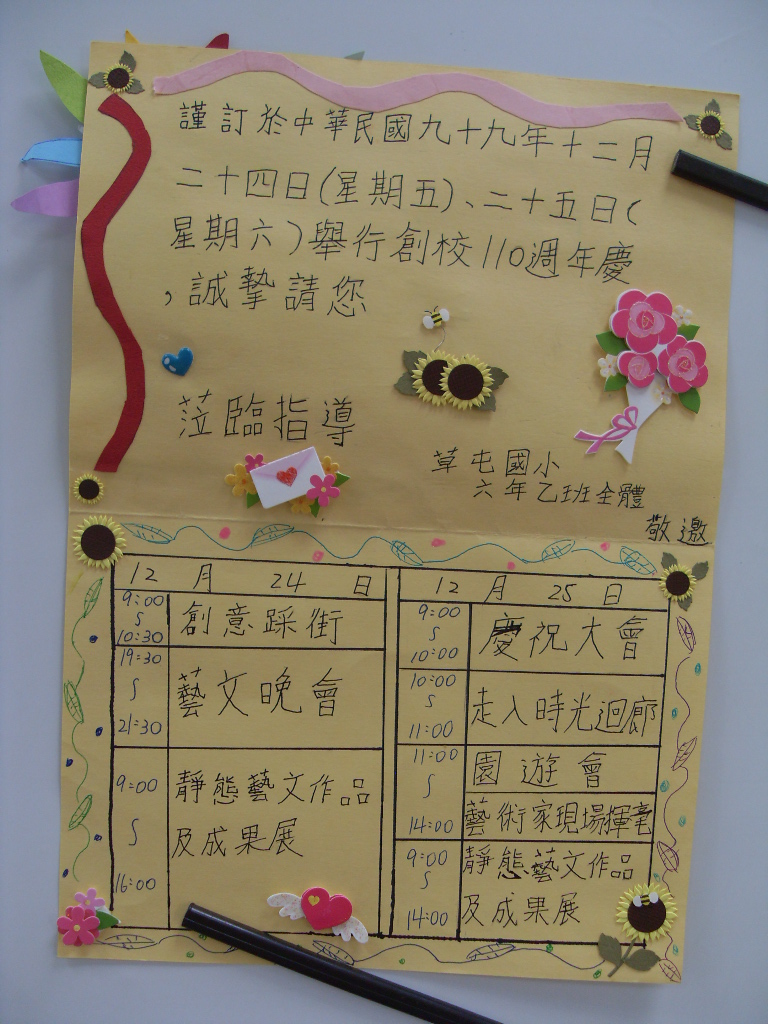 謹訂於中華民國九十九年十二月
二十四日(星期五)、二十五日(
星期六)舉行創校110週年慶
,誠摯請您
蒞臨指導
草屯國小
六年乙班全體
敬邀
12月24日
9:00
∫
10:30
創意踩街
19:30
∫
21:30
藝文晚會
9:00
∫
16:00
靜態藝文作品
及成果展
12月25日
9:00
∫
10:00
慶祝大會
10:00
∫
11:00
走入時光迴廊
11:00
∫
14:00
園遊會
藝術家現場揮毫
9:00
∫
14:00
靜態藝文作品
及成果展